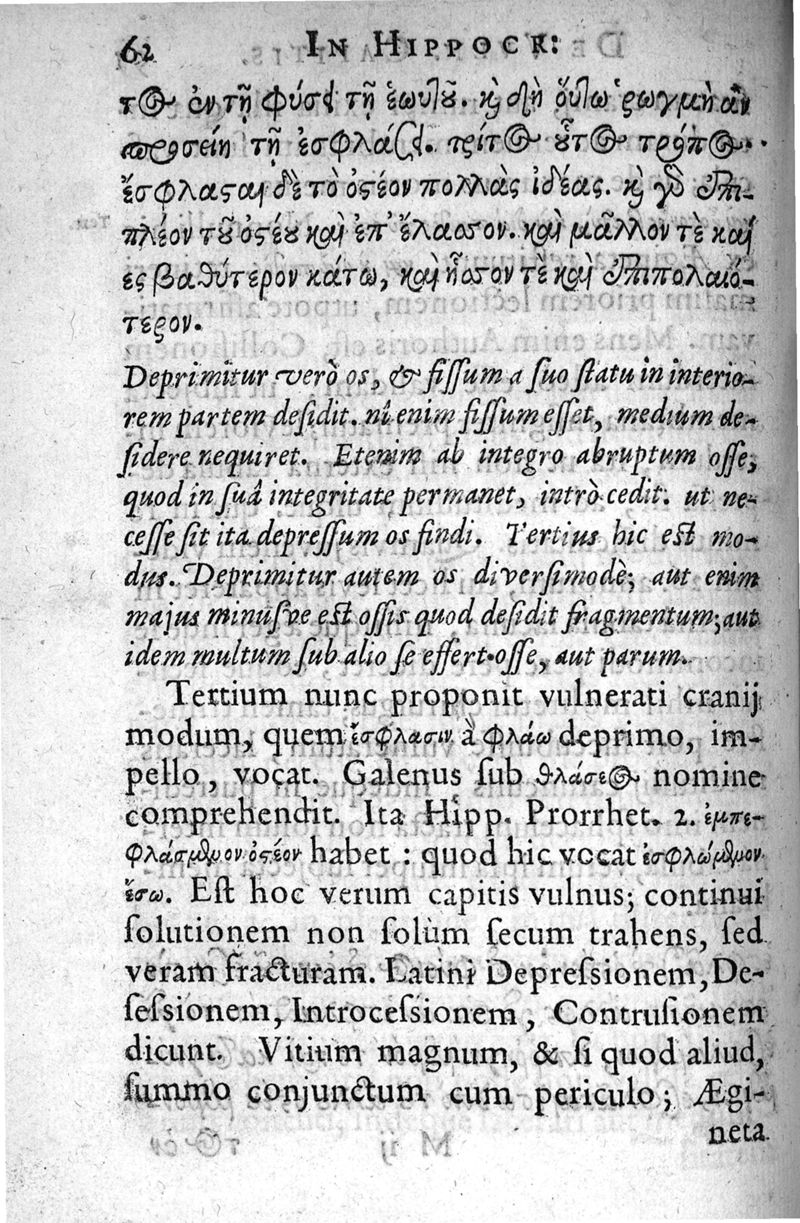 62 IN HIPPOCR:
τος ἐν τῇ φύσει τῇ ἑωυτοῦ. καὶ δὴ οὕτω ῥωγμὴ ἂν
προσείη τῇ ἐσφλάσει. τρίτος οὗτος τρόπος.
ἔσφλασται δὲ τὸ ὀστέον πολλὰς ἰδέας. καὶ γὰρ ἐπι-
πλέον τοῦ ὀστέου καὶ ἐπ' ἔλασσον. καὶ μᾶλλον τὲ καὶ
ες βαθύτερον κάτω, καὶ ἧσσον τὲ καὶ ἐπιπολαιό-
τερον.
Deprimitur verò os, & fiſſum a ſuo ſtatu in interio-
rem partem deſidit. ni enim fiſſum eſſet, medium de-
ſidere nequiret. Etenim ab integro abruptum oſſe,
quod in ſuâ integritate permanet, intrò cedit. ut ne-
ceſſe ſit ita depreſſum os findi. Tertius hic eſt mo-
dus. Deprimitur autem os diverſimodè; aut enim
majus minúſve eſt oſſis quod deſidit fragmentum; aut
idem multum ſub alio ſe effert oſſe, aut parum.
Tertium nunc proponit vulnerati cranij
modum, quem ἔσφλασιν à φλάω deprimo, im-
pello, vocat. Galenus ſub θλάσεος nomine
comprehendit. Ita Hipp. Prorrhet. 2. ἐμπε-
φλάσμενον ὀστέον habet : quod hic vocat ἐσφλώμενον
ἔσω. Eſt hoc verum capitis vulnus; continui
ſolutionem non ſolùm ſecum trahens, ſed
veram fracturam. Latini Depreſsionem, De-
ſeſsionem, Introceſsionem, Contruſionem
dicunt. Vitium magnum, & ſi quod aliud,
ſummo conjunctum cum periculo; Ægi-
neta